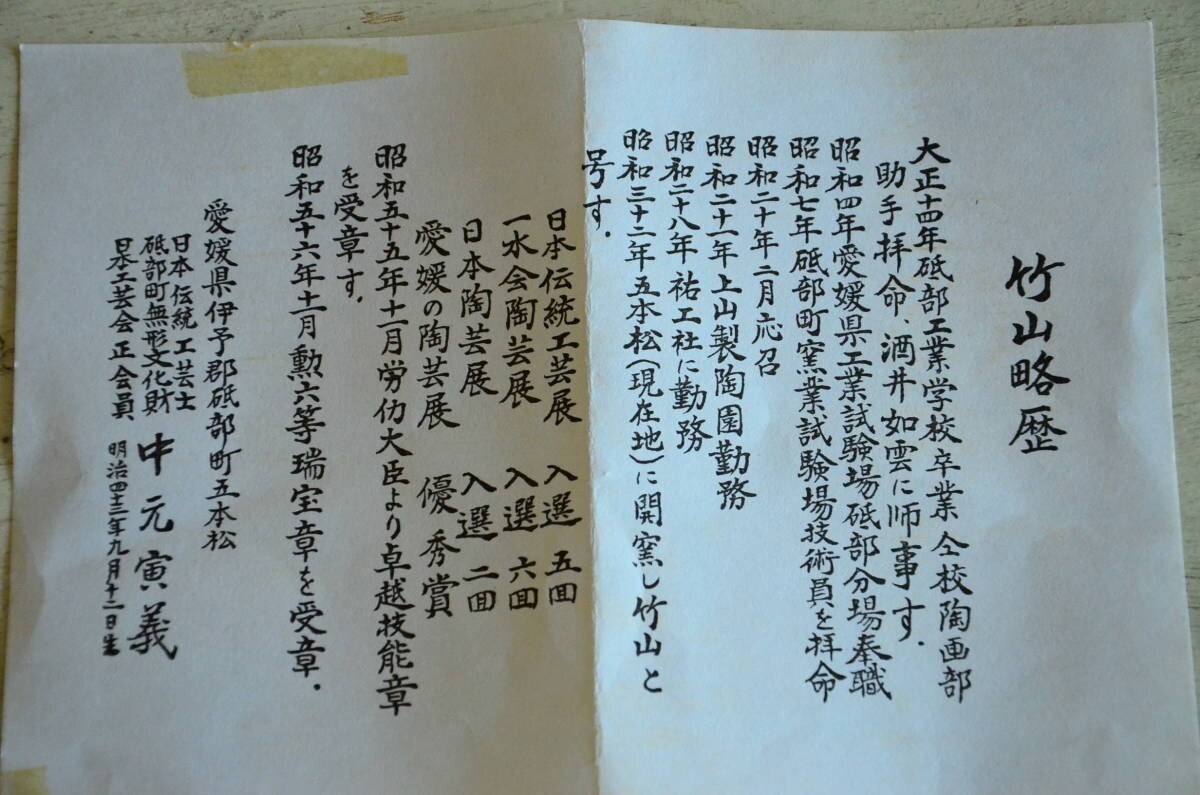 竹山略歴
大正十四年砥部工業学校卒業仝校陶画部
助手拝命、酒井如雲に師事す．
昭和四年愛媛県工業試験場砥部分場奉職
昭和七年砥部町窯業試験場技術員を拝命
昭和二十年二月応召
昭和二十一年上山製陶園勤務
昭和二十八年祐工社に勤務
昭和三十二年五本松(現在地)に開窯し竹山と
号す．
日本伝統工芸展 入選 五回
一水会陶芸展 入選 六回
日本陶芸展 入選 二回
愛媛の陶芸展 優秀賞
昭和五十五年十一月労仂大臣より卓越技能章
を受章す．
昭和五十六年十一月勲六等瑞宝章を受章．
愛媛県伊予郡砥部町五本松
日本伝統工芸士
砥部町無形文化財
日本工芸会正会員
中元寅義
明治四十三年九月十二日生